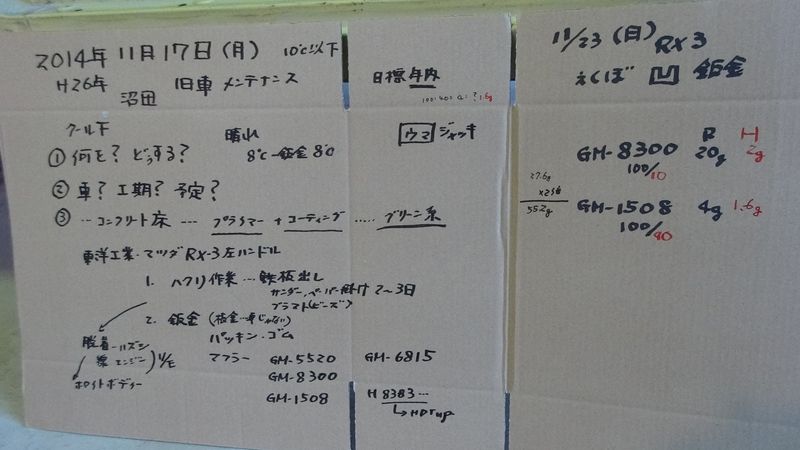 2014年 11月17日(月) 10℃以下
H26年 旧車 メンテナンス
沼田
目標 年内
100:40=a:? 1.6g
ウマ ジャッキ
クール下 晴れ
8℃-鈑金 8℃
① 何を? どうする?
② 車? 工期? 予定?
③ … コンクリート床 --- プライマー + コーティング ..... グリーン系
東洋工業・マツダ RX-3 左ハンドル
1. ハクリ作業 … 鉄板出し
サンダー、ペーパー掛け 2~3日
ブラスト(ビーズ)
2. 鈑金 (板金…車じゃない)
パッキン・ゴム
マフラー GM-5520 GM-6815
GM-8300
GM-1508 H 8383…
→HDrup
脱着…ハズシ
エンジン
ホワイトボディー
11/23 (日) RX3
えくぼ 凹 鈑金
R H
GM-8300 20g 2g
100/10
27.6g
55.2g
GM-1508 4g 1.6g
100/40